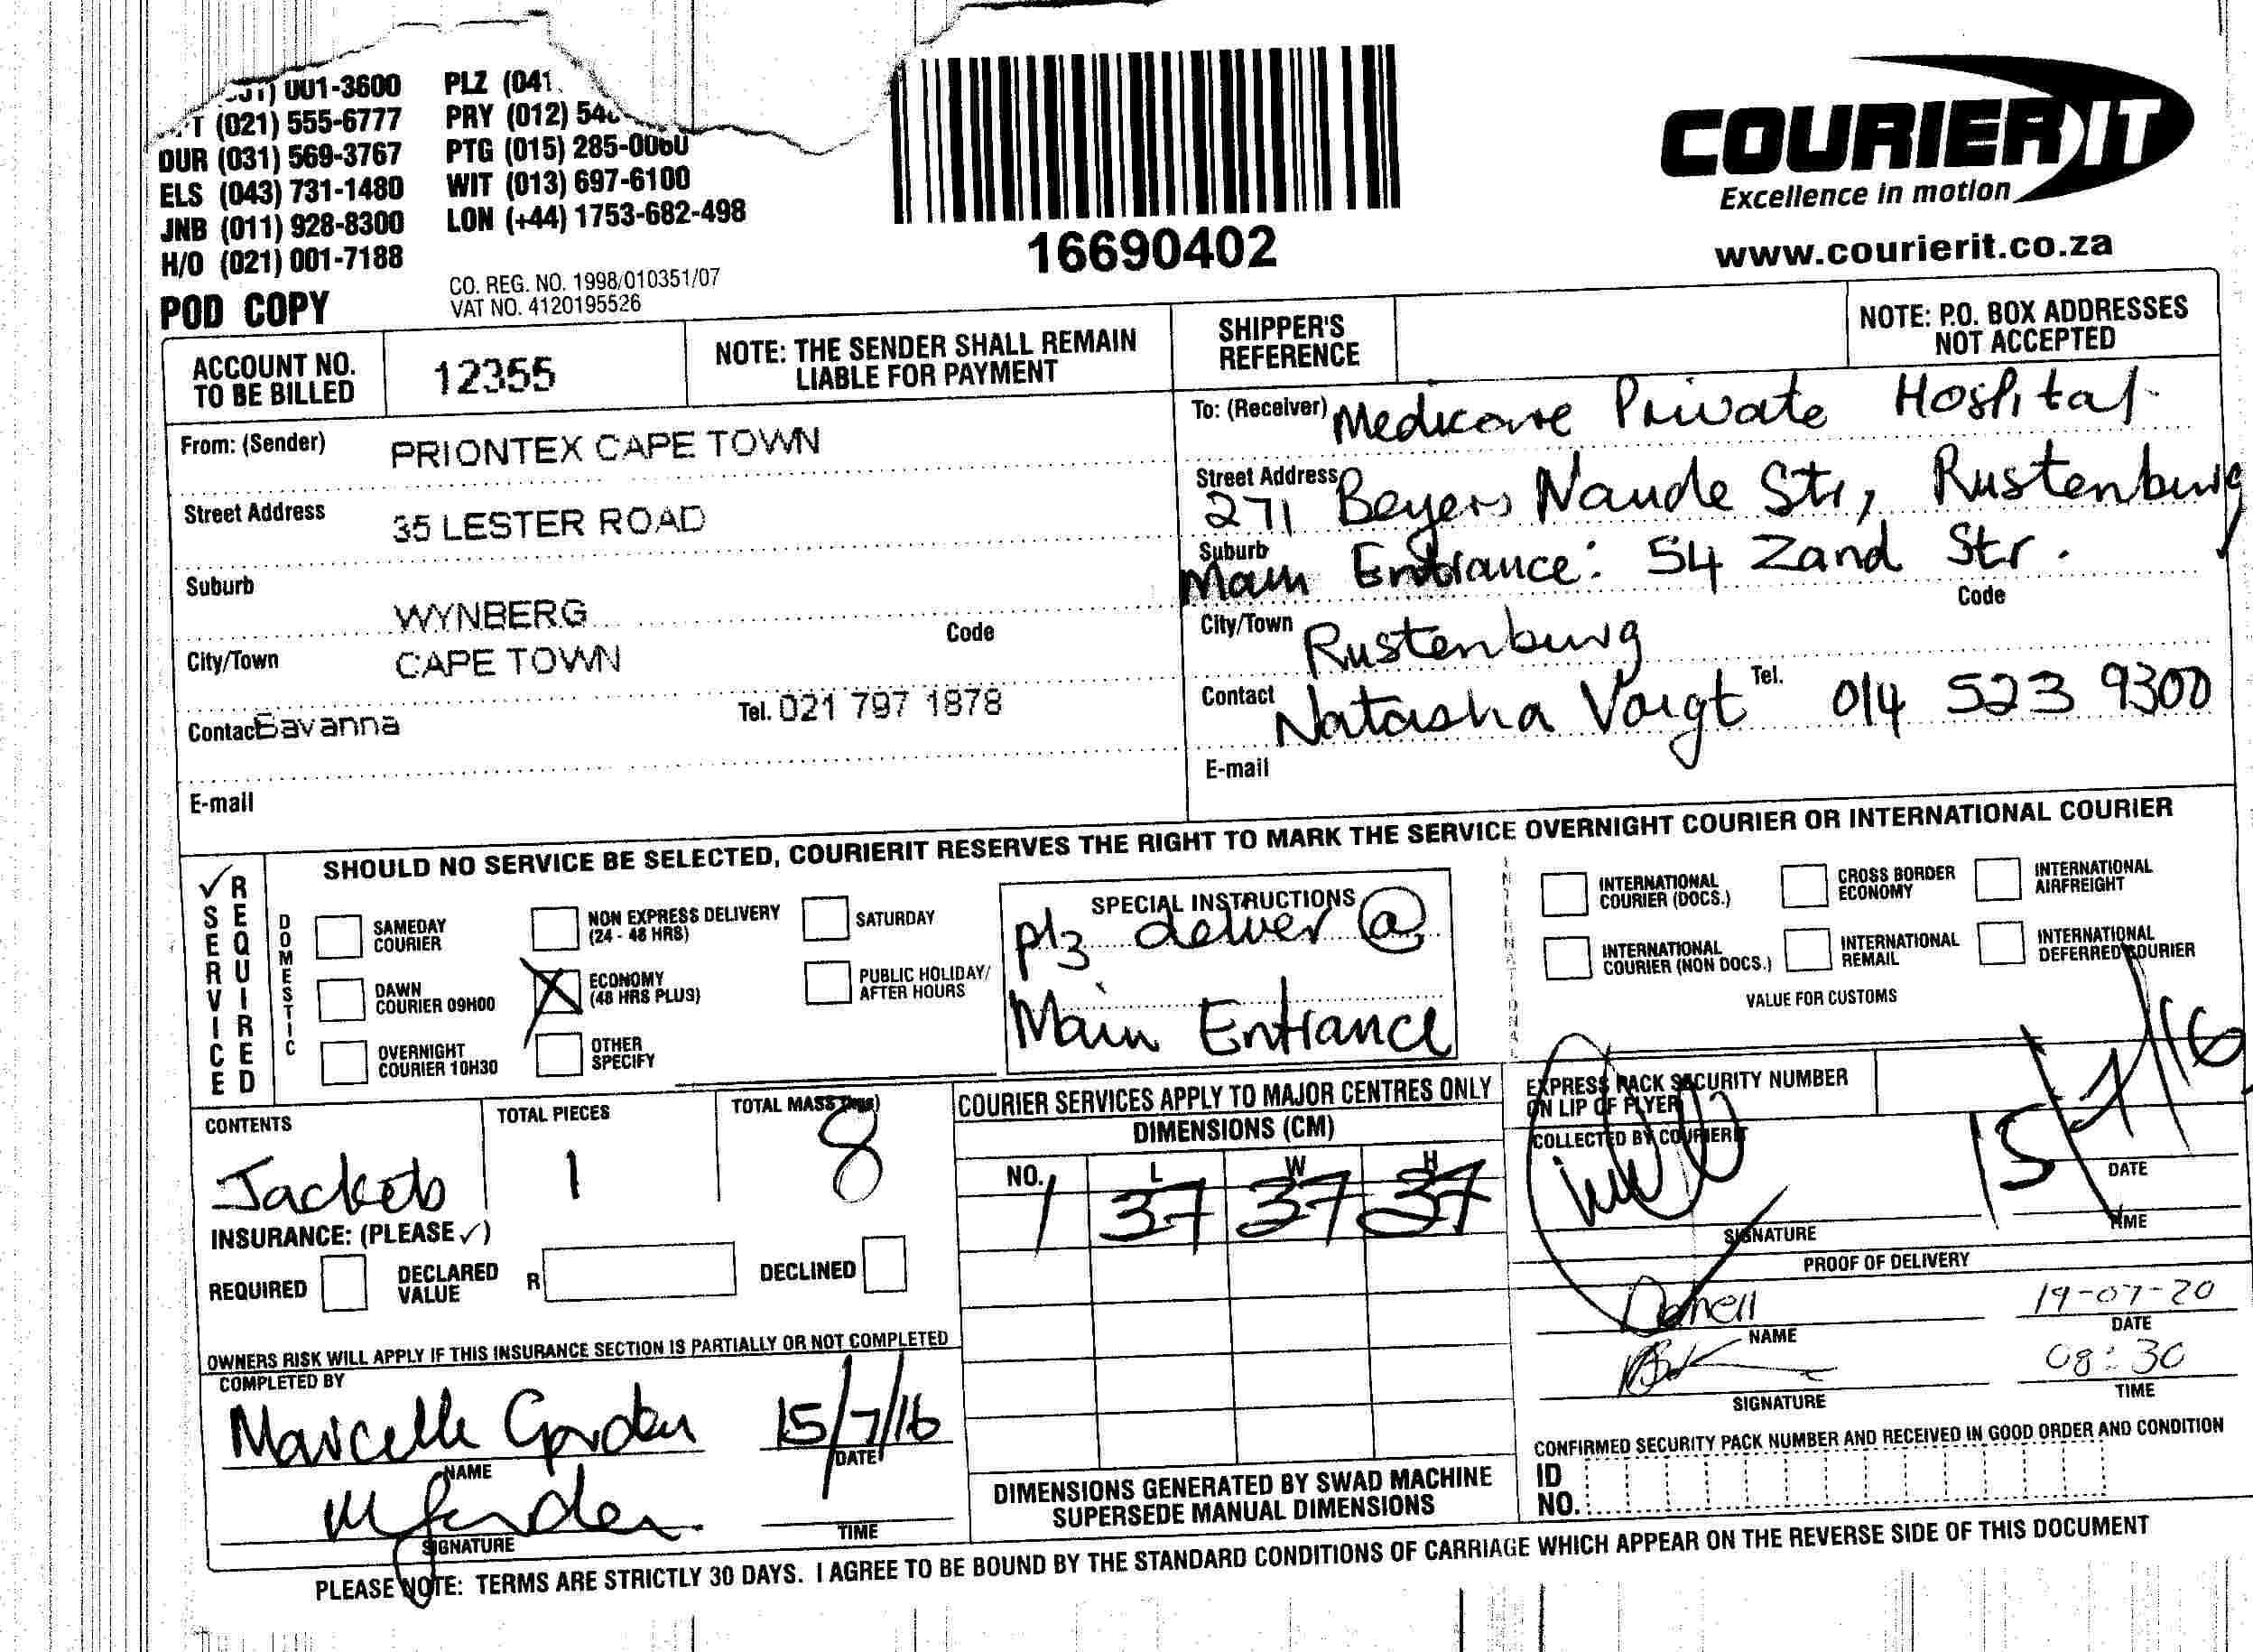 001-3600 PLZ (041
T (021) 555-6777 PRY (012) 54
DUR (031) 569-3767 PTG (015) 285-0060
ELS (043) 731-1480 WIT (013) 697-6100
JNB (011) 928-8300 LON (+44) 1753-682-498
H/O (021) 001-7188
POD COPY
CO. REG. NO. 1998/010351/07
VAT NO. 4120195526
16690402
COURIER IT
Excellence in motion
www.courierit.co.za
ACCOUNT NO. TO BE BILLED
12355
NOTE: THE SENDER SHALL REMAIN
LIABLE FOR PAYMENT
SHIPPER'S
REFERENCE
NOTE: P.O. BOX ADDRESSES
NOT ACCEPTED
From: (Sender) PRIONTEX CAPE TOWN
Street Address 35 LESTER ROAD
Suburb WYNBERG
Code
City/Town CAPE TOWN
Contact Savanna Tel. 021 797 1878
E-mail
To: (Receiver) Medicare Private Hospital
Street Address 271 Beyers Naude Str, Rustenburg
Suburb Main Entrance: 54 Zand Str.
Code
City/Town Rustenburg
Contact Natasha Voigt Tel. 014 523 9300
E-mail
SHOULD NO SERVICE BE SELECTED, COURIERIT RESERVES THE RIGHT TO MARK THE SERVICE OVERNIGHT COURIER OR INTERNATIONAL COURIER
SERVICE REQUIRED
DOMESTIC
SAMEDAY
COURIER
NON EXPRESS DELIVERY
(24 - 48 HRS)
SATURDAY
DAWN
COURIER 09H00
ECONOMY
(48 HRS PLUS)
PUBLIC HOLIDAY/
AFTER HOURS
OVERNIGHT
COURIER 10H30
OTHER
SPECIFY
SPECIAL INSTRUCTIONS
plz deliver @
Main Entrance
INTERNATIONAL
COURIER (DOCS.)
CROSS BORDER
ECONOMY
INTERNATIONAL
AIRFREIGHT
INTERNATIONAL
COURIER (NON DOCS.)
INTERNATIONAL
REMAIL
INTERNATIONAL
DEFERRED COURIER
VALUE FOR CUSTOMS
CONTENTS
Jackets
TOTAL PIECES
1
TOTAL MASS
8
INSURANCE: (PLEASE ✓)
REQUIRED
DECLARED
VALUE
R
DECLINED
OWNERS RISK WILL APPLY IF THIS INSURANCE SECTION IS PARTIALLY OR NOT COMPLETED
COMPLETED BY
Marcelle Gorden 15/7/16
NAME DATE
SIGNATURE TIME
COURIER SERVICES APPLY TO MAJOR CENTRES ONLY
DIMENSIONS (CM)
NO. L W H
1 37 37 37
DIMENSIONS GENERATED BY SWAD MACHINE
SUPERSEDE MANUAL DIMENSIONS
EXPRESS PACK SECURITY NUMBER
ON LIP OF FLYER
COLLECTED BY COURIERIT
15/7/16
DATE
SIGNATURE TIME
PROOF OF DELIVERY
19-07-20
NAME DATE
08:30
SIGNATURE TIME
CONFIRMED SECURITY PACK NUMBER AND RECEIVED IN GOOD ORDER AND CONDITION
ID
NO.
PLEASE NOTE: TERMS ARE STRICTLY 30 DAYS. I AGREE TO BE BOUND BY THE STANDARD CONDITIONS OF CARRIAGE WHICH APPEAR ON THE REVERSE SIDE OF THIS DOCUMENT